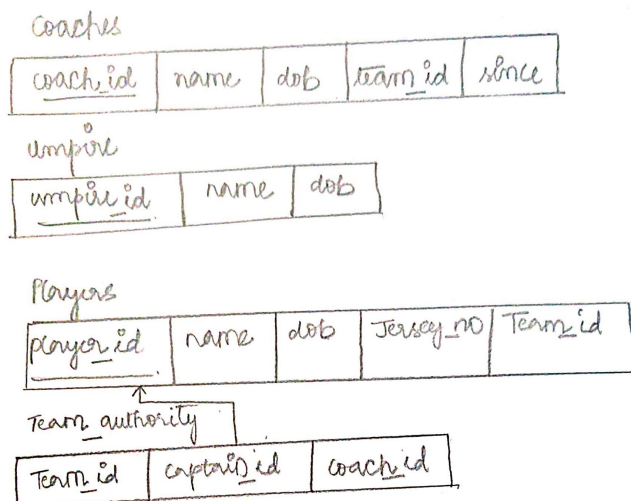 coaches
coach_id name dob team_id since
umpire
umpire_id name dob
Players
player_id name dob Jersey_no Team_id
Team_authority
Team_id captain_id coach_id